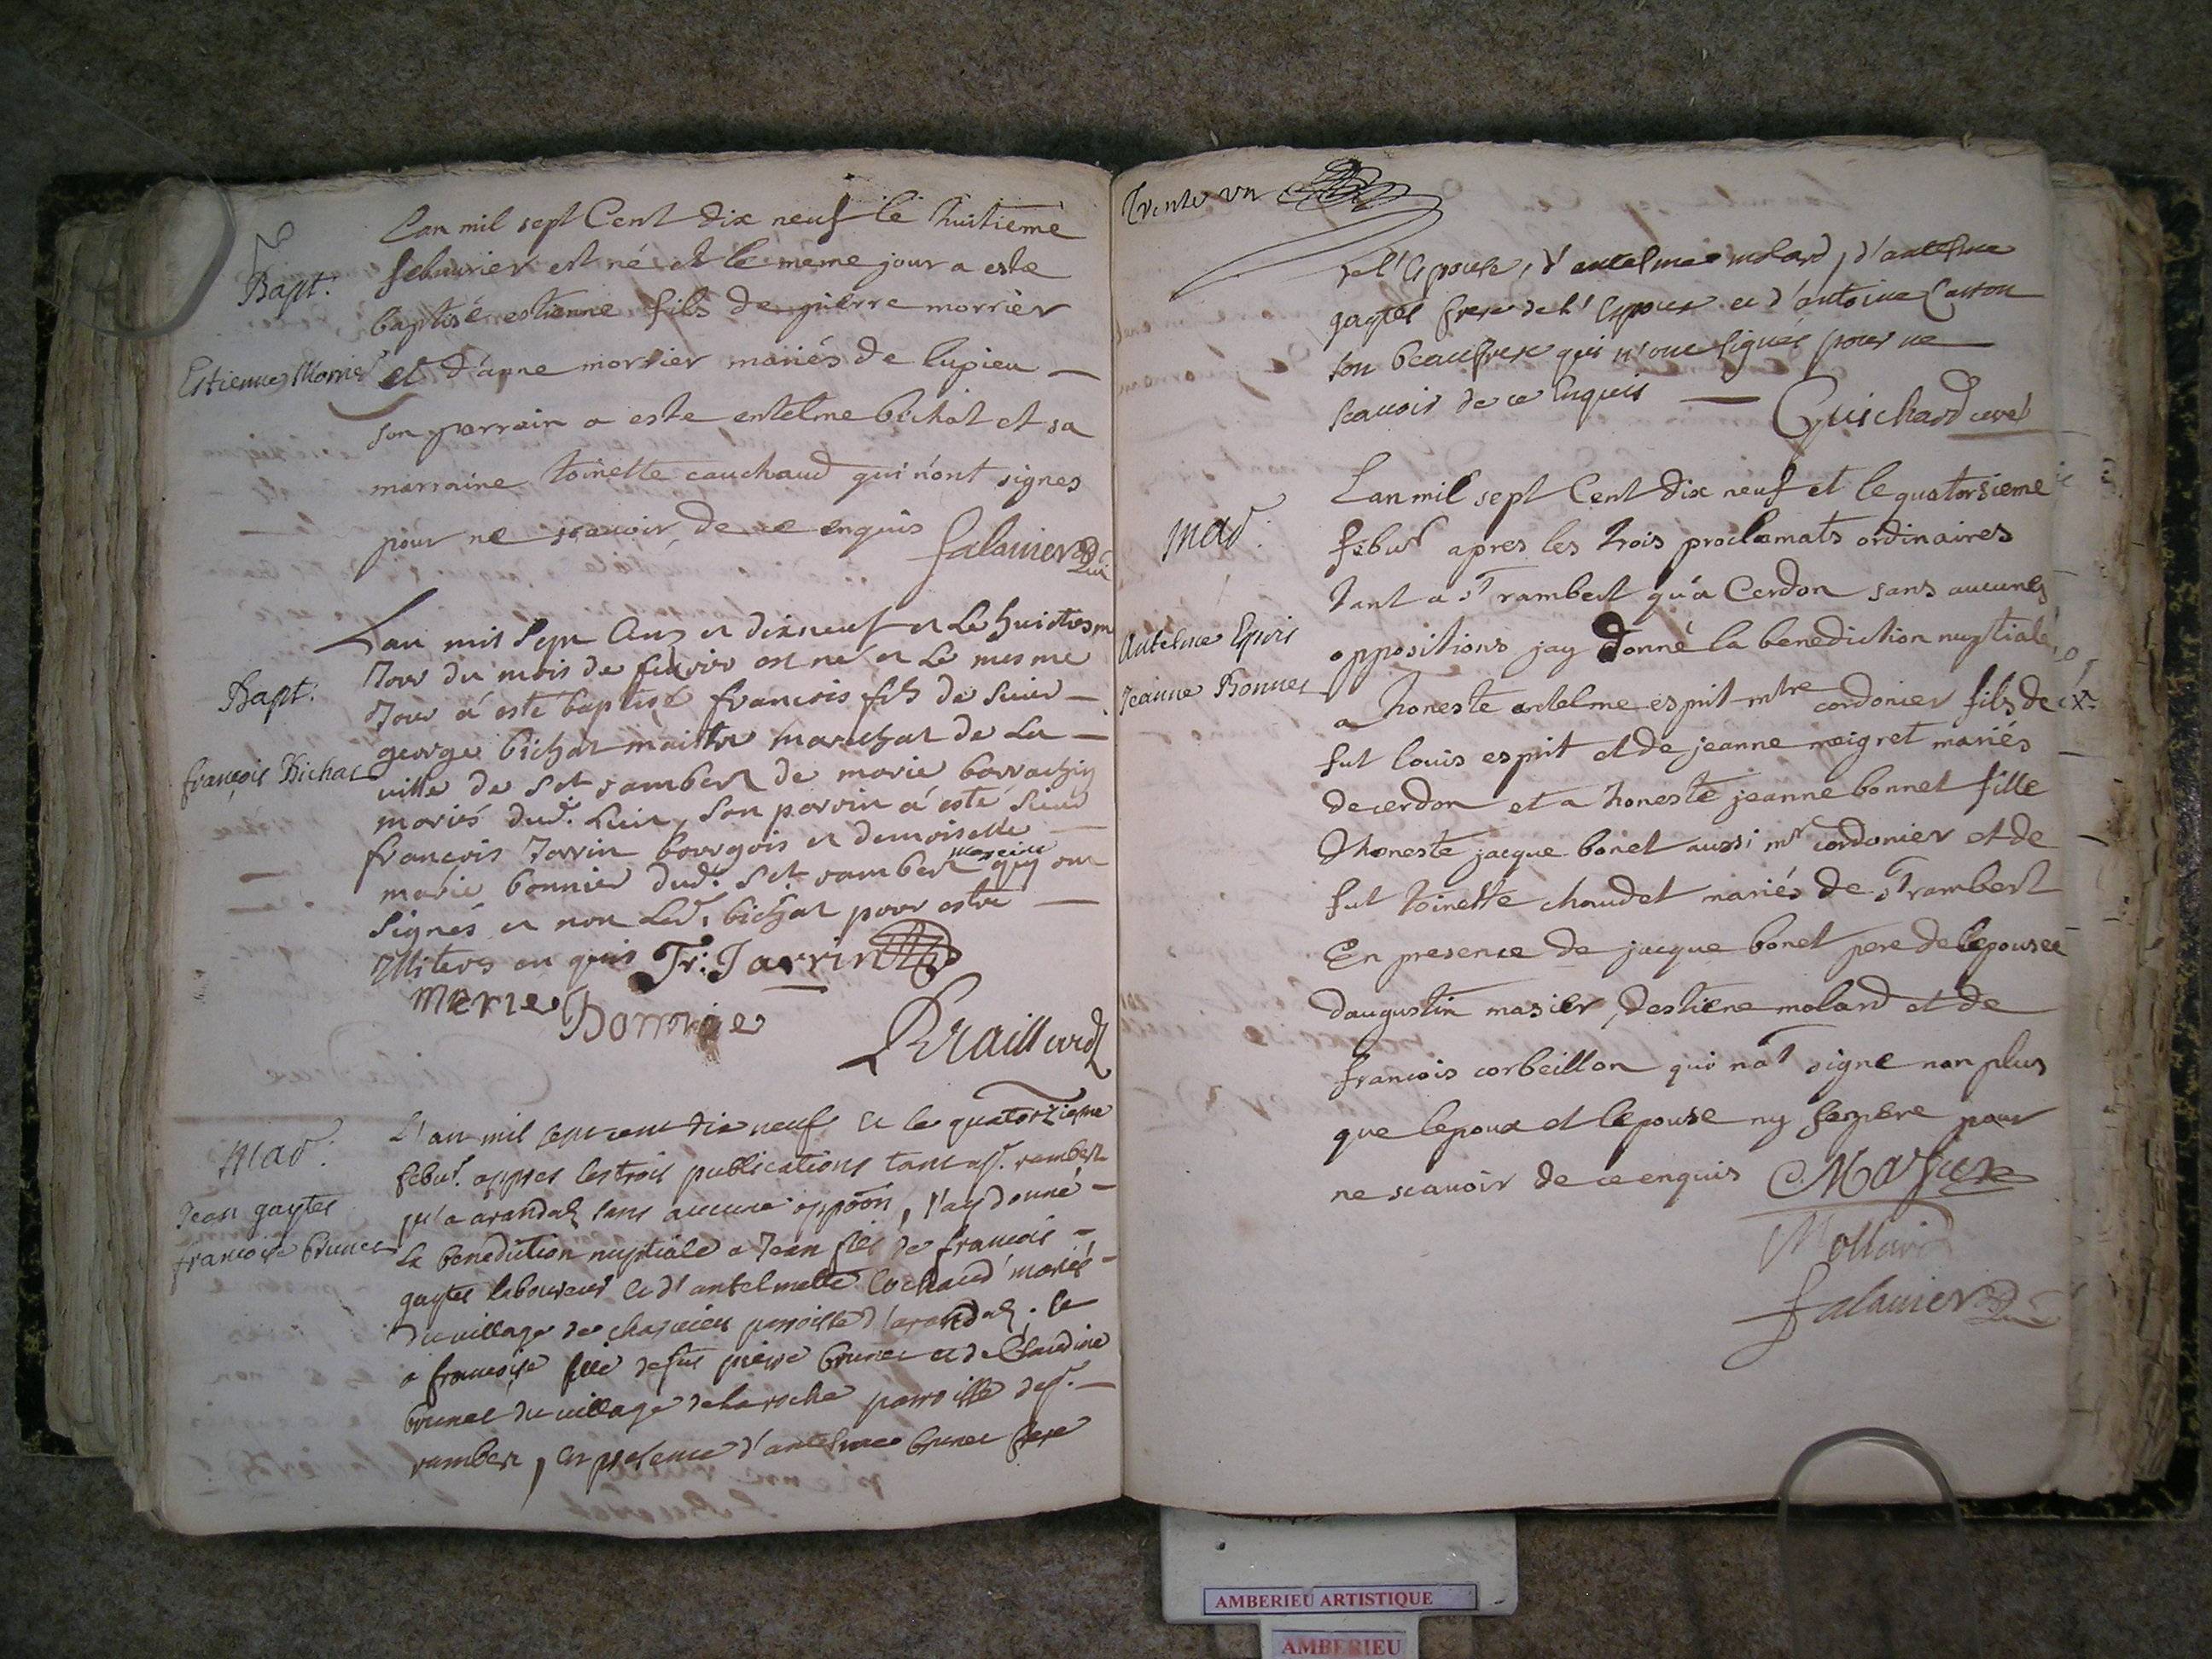 Bapt.
Estienne Morrier
Lan mil sept Cent dix neuf le huitieme
febvrier est né et le meme jour a este
baptisé estienne fils de pierre morrier
et d'anne morrier mariés de lupieu —
son parrain a este entelme bichat et sa
marraine toinette cauchaud qui n'ont signes
pour ne scavoir de ce enquis
falavier
Bapt.
françois Bichat
Lan mil Sept Cens et dixneuf et Le huictiesm
Jour du mois de fevrier est né et Le mesme
Jour á esté baptisé francois fils de Sieur —
george bichat maistre mareschat de La —
ville de Sct rambert de marie borrachin
mariés dud. Lieu, Son parrin á esté Sieur
francois Jarrin bourgois et demoiselle —
mareine
marie bonnier dud. Sct. rambert quy ont
Signés et non Led. bichat pour estre —
Illiteré en quis Fr. Jarrin
marie Bonnie
Braillard
Mar.
Jean gaytet
francoise Brunet
L'an mil sept cent dix neuf et le quatorzieme
febvr. appres les trois publications tant a st. rambert
qu'a arandas sans aucune oppoôn, j'ay donné —
la benediction nuptiale a Jean fils de francois —
gaytet laboureur et d'antelmette Cochaud mariés —
du village de chasieu parroisse d'arandas; et
a francoise fille de fut pierre brunet et de Claudine
brunet du village de la roche parroisse de st. —
rambert, en presence d'antelme brunet frere
Trente un
de l'Epouse, d'antelme molard, d'antelme
gaytet frere de l'Epoux et d'antoine Carron
son beaufrere qui n'ont signés pour ne
scavoir de ce enquis — Guichard curé
Mar.
Antelme Esprit
Jeanne Bonnet
Lan mil sept Cent dix neuf et le quatorsieme
febvr apres les trois proclamats ordinaires
tant a St rambert qu'a Cerdon sans aucunes
oppositions jay donné la benediction nuptiale
a honeste antelme esprit mtre cordonier fils de
fut louis esprit et de jeanne meigret mariés —
de cerdon et a honeste jeanne bonnet fille
d'honeste jacque bonet aussi mr cordonier et de
fut toinette chaudet mariés de St rambert
En presence de jacque bonet pere de lepousée
daugustin masier, destiene molard et de
francois corbeillon qui nat signe non plus
que lepoux et lepouse ny son pere pour
ne scavoir de ce enquis
Masier
Mollard
falavier
AMBERIEU ARTISTIQUE
AMBERIEU